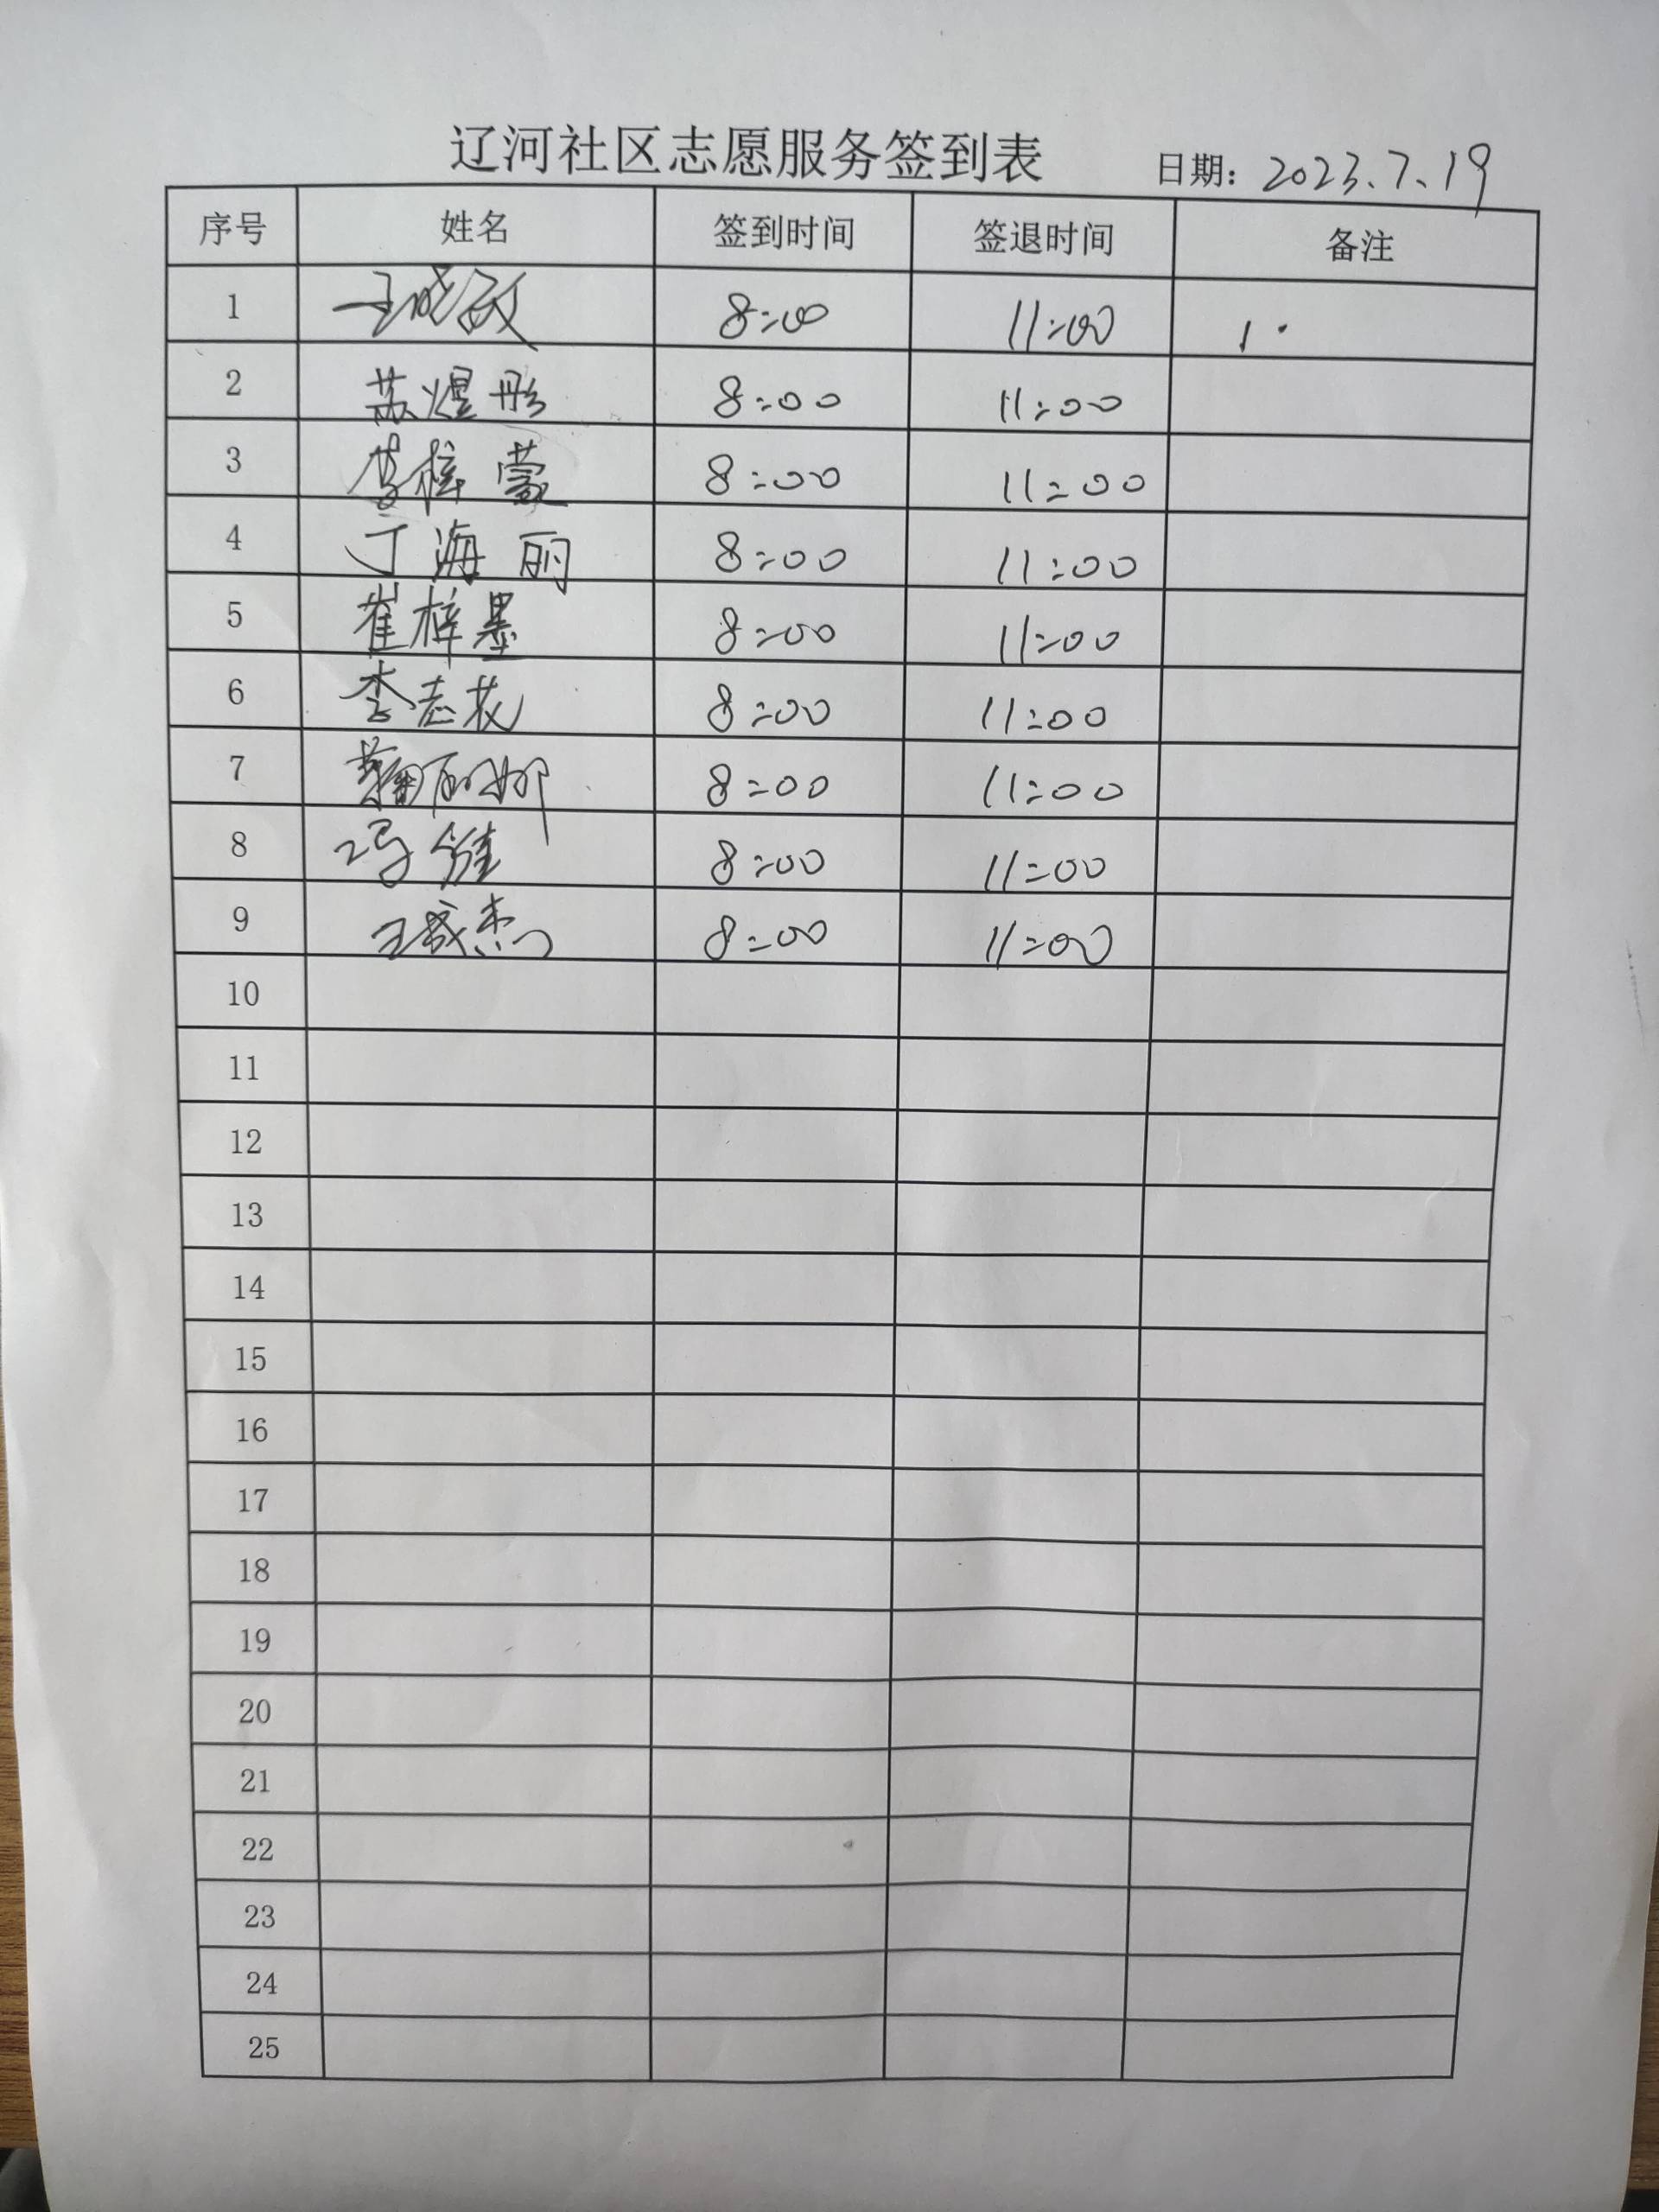 辽河社区志愿服务签到表 日期: 2023.7.19
序号 姓名 签到时间 签退时间 备注
1 王晓敏 8:00 11:00
2 苏煜彤 8:00 11:00
3 李梓蒙 8:00 11:00
4 丁海丽 8:00 11:00
5 崔梓墨 8:00 11:00
6 李志花 8:00 11:00
7 丽娜 8:00 11:00
8 冯 8:00 11:00
9 王成杰 8:00 11:00
10
11
12
13
14
15
16
17
18
19
20
21
22
23
24
25